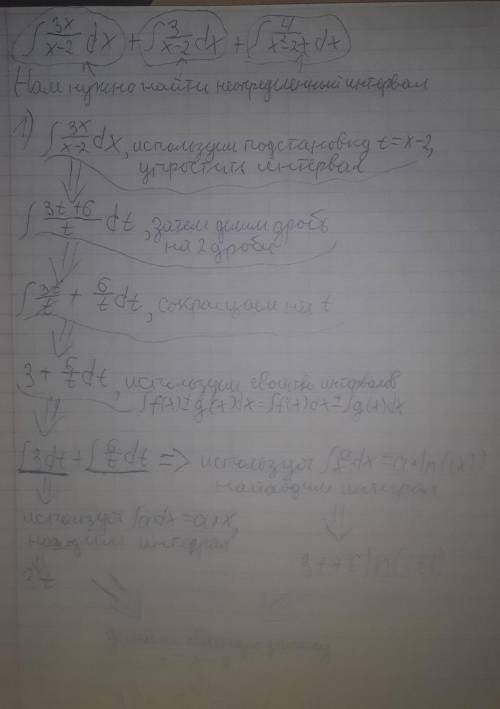 ∫ 3x/(x-2) dx + ∫ 3/(x-2) dx + ∫ dx
Нам нужно найти неопределенный интервал
1) ∫ 3x/(x-2) dx, используем подстановку t = x-2,
упростить интервал
∫ (3t+6)/t dt, затем делим дробь
на 2 дроби
∫ 3t/t + 6/t dt, сокращаем на t
3 + 6/t dt, используем свойства интервалов
∫f(x)±g(x)dx=∫f(x)dx±∫g(x)dx
dt + ∫ 6/t dt => используя
находим интеграл
используя ∫adx=a·x,
находим интеграл